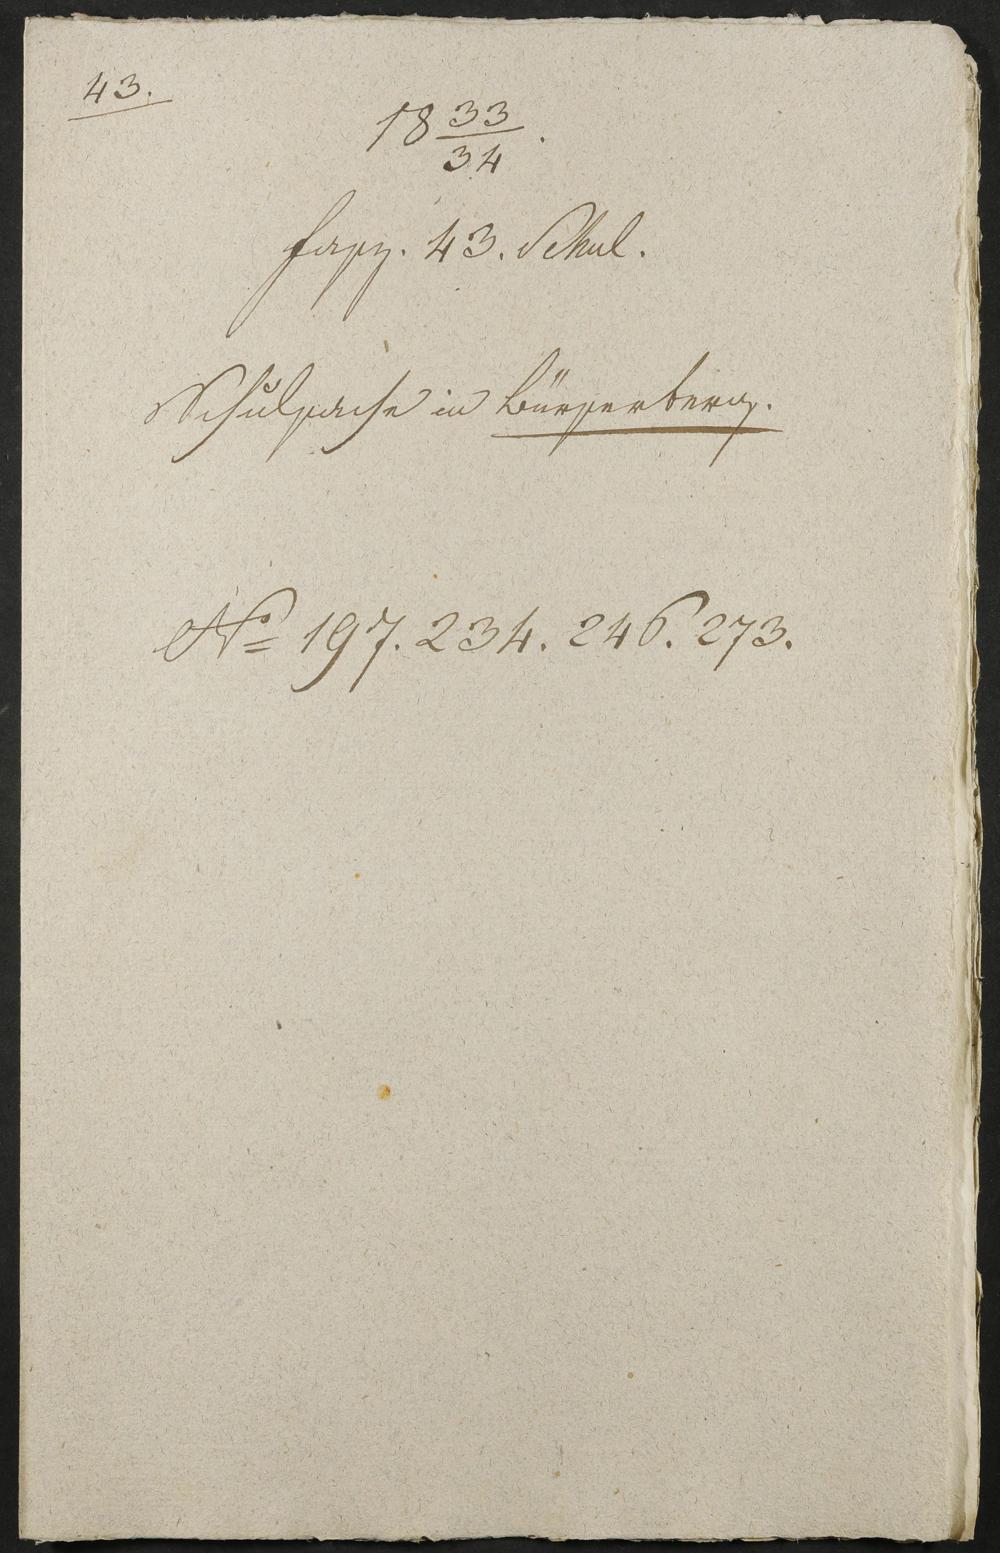 43.
18 33/34.
fasz. 43. Schul.
Schulsache in Bürserberg.
No 197. 234. 246. 273.